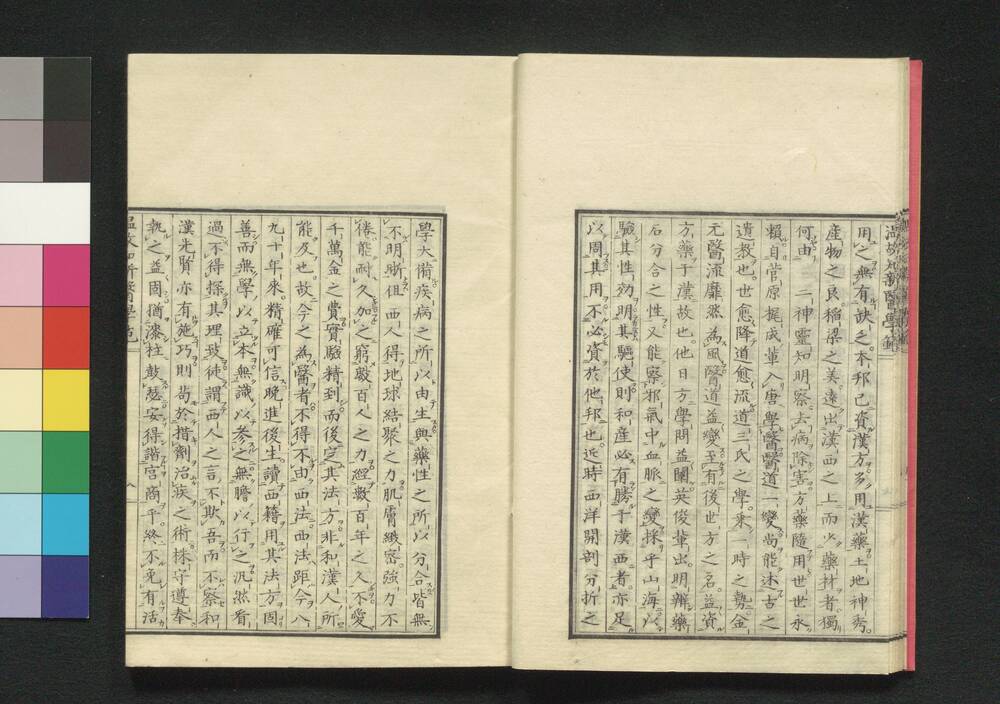 用之無有缺乏本邦已資漢方多用漢藥土地神秀
産物之良稲梁之美遠出漢西之上而少藥材者獨
何由二神靈知明察去病除害方藥隨用世世永
賴自菅原梶成輩入唐學醫醫道一變尚能沭古之
遺教也世愈降道愈流道三氏之學乘一時之勢金
元醫流靡然為風醫道益變至有後世方之名益資
方藥于漢故也他日方學問益闡英俊輩出明辨藥
石分合之性又能察邪氣中血脈之變採乎山海以
驗其性効明其驅使則和産必有勝于漢西者亦足
以周其用不必資於他邦也近時西洋開剖分折之
學大備疾病之所以由生與藥性之所以分合皆無
不明晣但西人得地球結聚之力肌膚緻密強力不
倦能耐久加之窮數百人之力經數百年之久不愛
千萬金之費實驗精到而後定其法方非和漢人所
能及也故今之為醫者不得不由西法西法距今八
九十年來精確可信晩進後生讀西籍用其法方固
善而無學以立本無識以參之無膽以行之汎然看
過不得探其理致徒謂西人之言不欺吾而不察和
漢先賢亦有施巧則苟於措劑治疾之術株守遵奉
執之益固猶漆柱鼓瑟安得諧宮商乎終不免有活